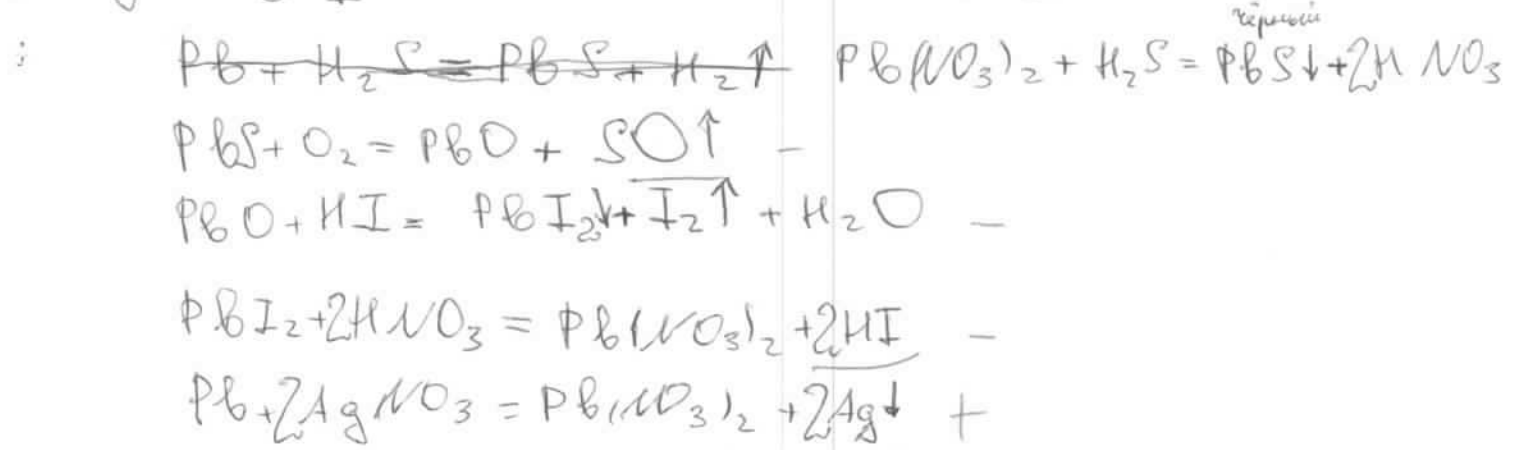 чёрный
Pb + H₂S = PbS + H₂↑ Pb(NO₃)₂ + H₂S = PbS↓ + 2HNO₃
PbS + O₂ = PbO + SO↑ −
PbO + HI = PbI₂↓ + I₂↑ + H₂O −
PbI₂ + 2HNO₃ = Pb(NO₃)₂ + 2HI −
Pb + 2AgNO₃ = Pb(NO₃)₂ + 2Ag↓ +